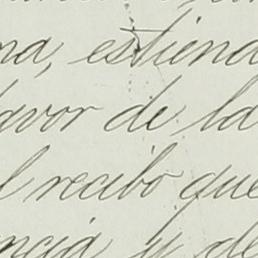 na, estiend
avor de la
l recibo que
ncia y de